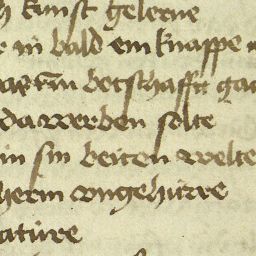 kunst gelerne
in bald ein knappe
botschafft
da werben solte
in sin beiten welte
herin ungehúwre
atúre